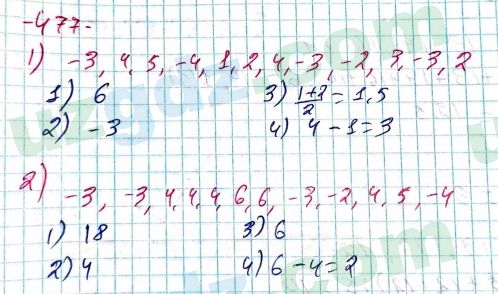 -477-
1) -3, 4, 5, -4, 1, 2, 4, -3, -2, 3, -3, 2
1) 6
2) -3
3) (1+2)/2 = 1,5
4) 4 - 1 = 3
2) -3, -3, 4, 4, 4, 6, 6, -3, -2, 4, 5, -4
1) 18
2) 4
3) 6
4) 6 - 4 = 2